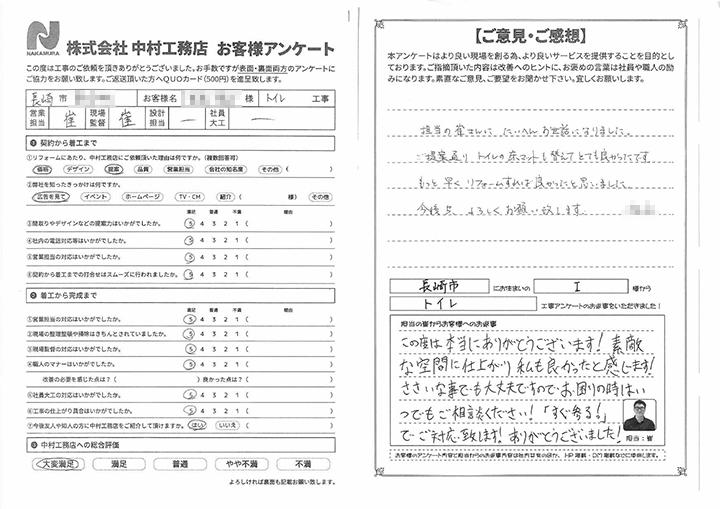 NAKAMURA
株式会社 中村工務店 お客様アンケート
この度は工事のご依頼を頂きありがとうございました。お手数ですが表面・裏面両方のアンケートに
ご協力をお願い致します。ご返送頂いた方へQUOカード(500円)を進呈致します。
長崎 市 お客様名 様 トイレ 工事
営業担当 崔 現場監督 崔 設計担当 ー 社員大工 ー
❶ 契約から着工まで
①リフォームにあたり、中村工務店にご依頼頂いた理由は何ですか。(複数回答可)
価格 デザイン 提案 品質 営業担当 会社の知名度 その他 ( )
②弊社を知ったきっかけは何ですか。
広告を見て イベント ホームページ TV・CM 紹介 ( 様) その他
満足 普通 不満 理由
③間取りやデザインなどの提案力はいかがでしたか。 5 4 3 2 1 ( )
④社内の電話対応等はいかがでしたか。 5 4 3 2 1 ( )
⑤営業担当の対応はいかがでしたか。 5 4 3 2 1 ( )
⑥契約から着工までの打合せはスムーズに行われましたか。 5 4 3 2 1 ( )
❷ 着工から完成まで
満足 普通 不満 理由
①営業担当の対応はいかがでしたか。 5 4 3 2 1 ( )
②現場の整理整頓や掃除はきちんとされていましたか。 5 4 3 2 1 ( )
③現場監督の対応はいかがでしたか。 5 4 3 2 1 ( )
④職人のマナーはいかがでしたか。 5 4 3 2 1 ( )
改善の必要を感じた点は?( ) 良かった点は?( )
⑤社員大工の対応はいかがでしたか。 5 4 3 2 1 ( )
⑥工事の仕上がり具合はいかがでしたか。 5 4 3 2 1 ( )
⑦今後友人や知人の方に中村工務店をご紹介して頂けますか。 はい いいえ ( )
❸ 中村工務店への総合評価
大変満足 満足 普通 やや不満 不満
よろしければ裏面も記載お願い致します。
【ご意見・ご感想】
本アンケートはより良い現場を創る為、より良いサービスを提供することを目的とし
ております。ご指摘頂いた内容は改善へのヒントに、お褒めの言葉は社員や職人の励
みになります。素直なご意見、ご要望をお聞かせ下さい。宜しくお願いします。
担当の崔さんに、たいへんお世話になりました。
ご提案通り、トイレの床マットも替えてとても良かったです
もっと早くリフォームすれば良かったと思いました。
今後も よろしくお願い致します。
長崎市 にお住まいの I 様から
トイレ 工事アンケートのお返事をいただきました!
担当の崔からお客様へのお返事
この度は本当にありがとうございます! 素敵
な空間に仕上がり私も良かったと感じます!
ささいな事でも大丈夫ですので、お困りの時はい
つでもご相談ください! 「すぐ参る!」
でご対応致します! ありがとうございました!
担当:崔